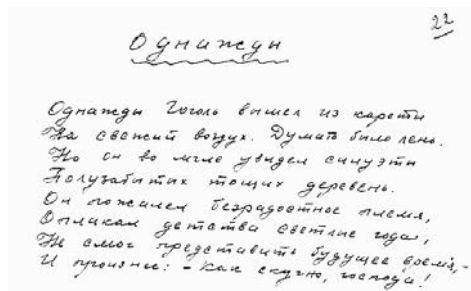 22
Однажды
Однажды Гоголь вышел из кареты
На свежий воздух. Думать было лень.
Но он во мгле увидел силуэты
Полузабытых тощих деревень.
Он пожалел безрадостное племя,
Оплакал детства светлые года,
Не смог представить будущее время, -
И произнес: - Как скучно, господа!